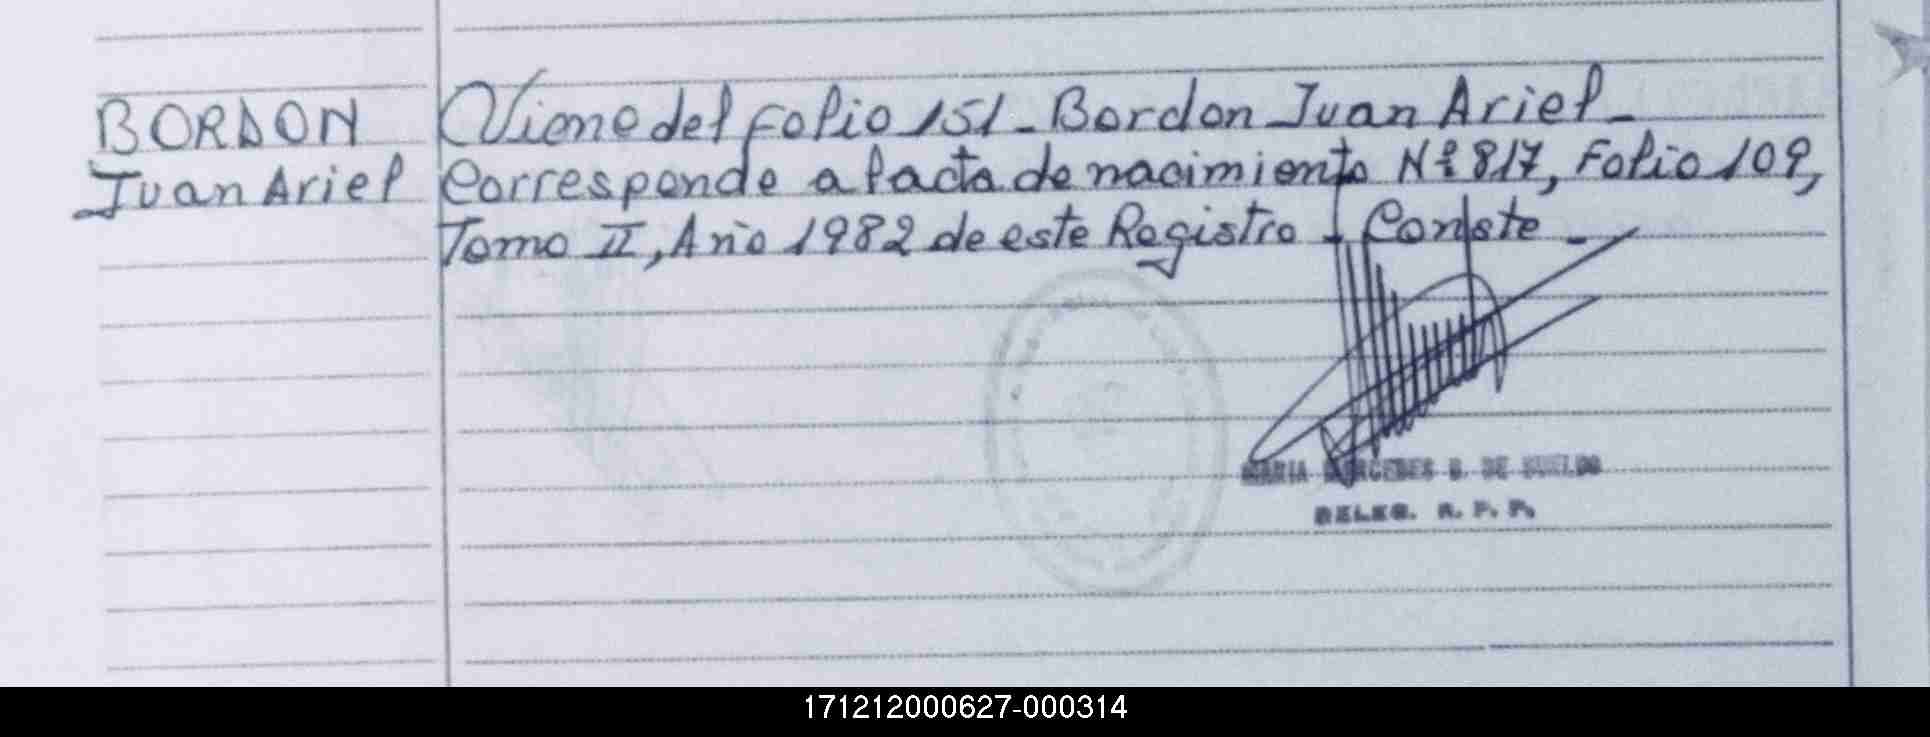 BORDON
Juan Ariel
Viene del Folio 151 - Bordon Juan Ariel -
Corresponde a l'acta de nacimiento Nº 817, Folio 109,
Tomo II, Año 1982 de este Registro - Conste -
MARIA MERCEDES B. DE SUELDO
DELEG. R. P. P.
171212000627-000314